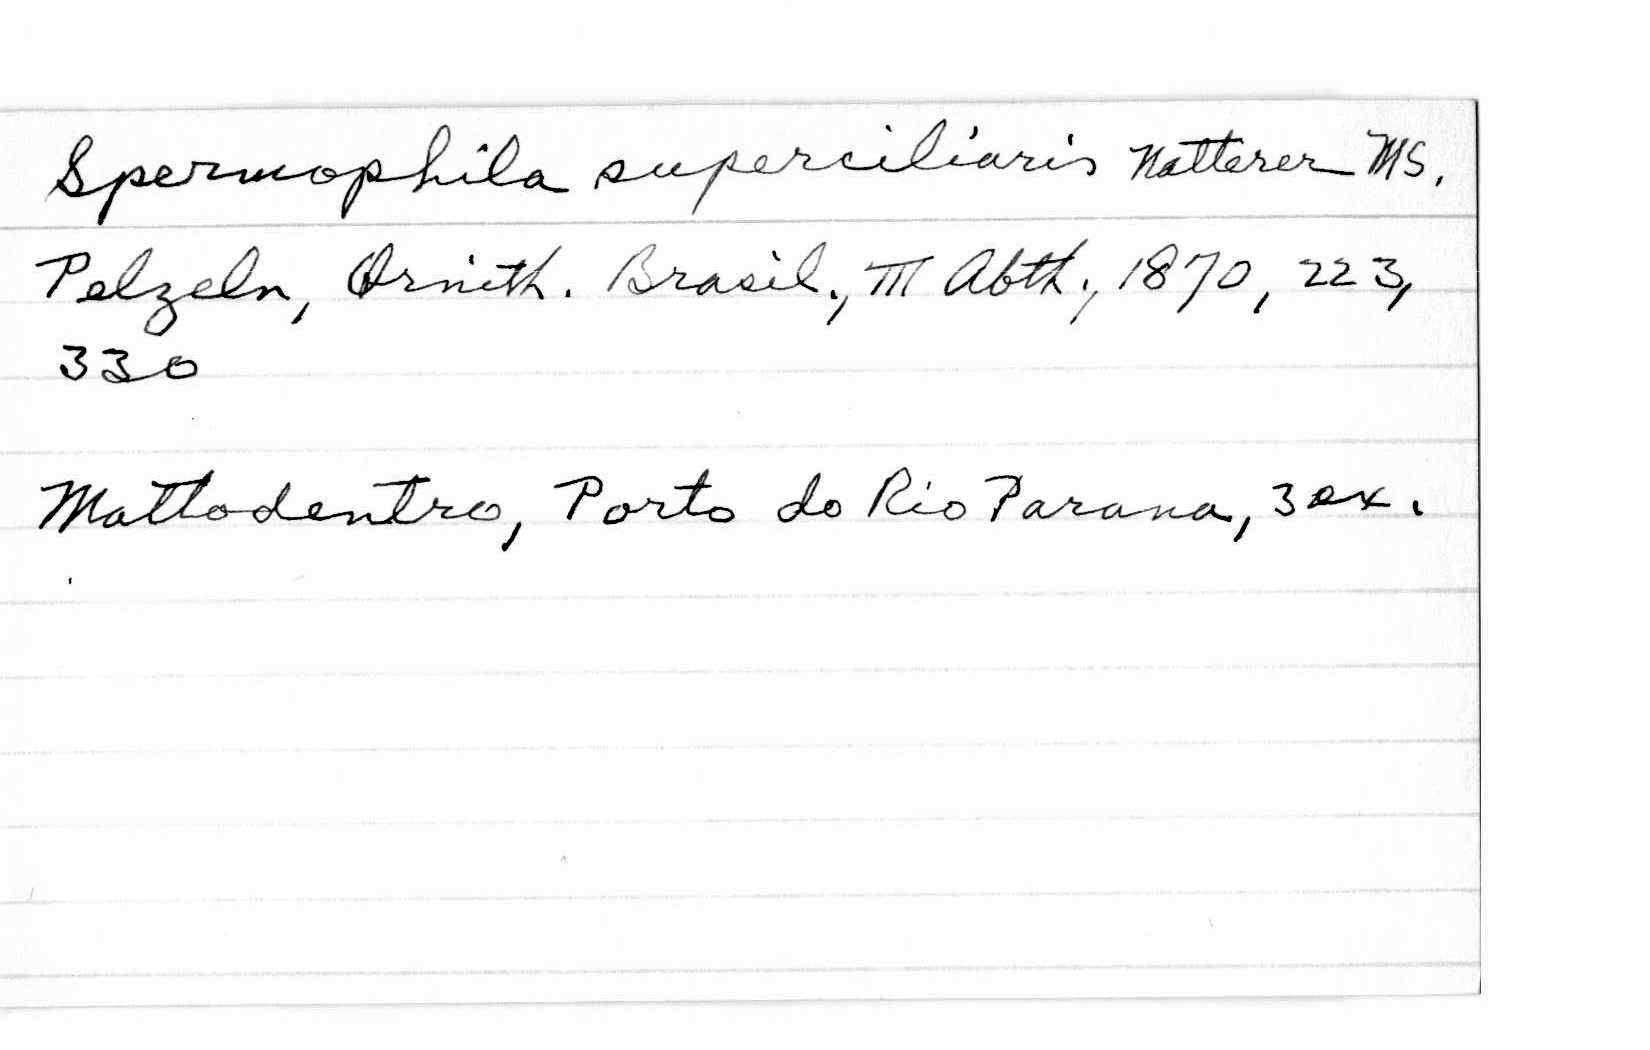 Spermophila superciliaris Natterer MS.
Pelzeln, Ornith. Brasil., III Abth., 1870, 223,
330
Mattodentro, Porto do Rio Parana, 3 ex.